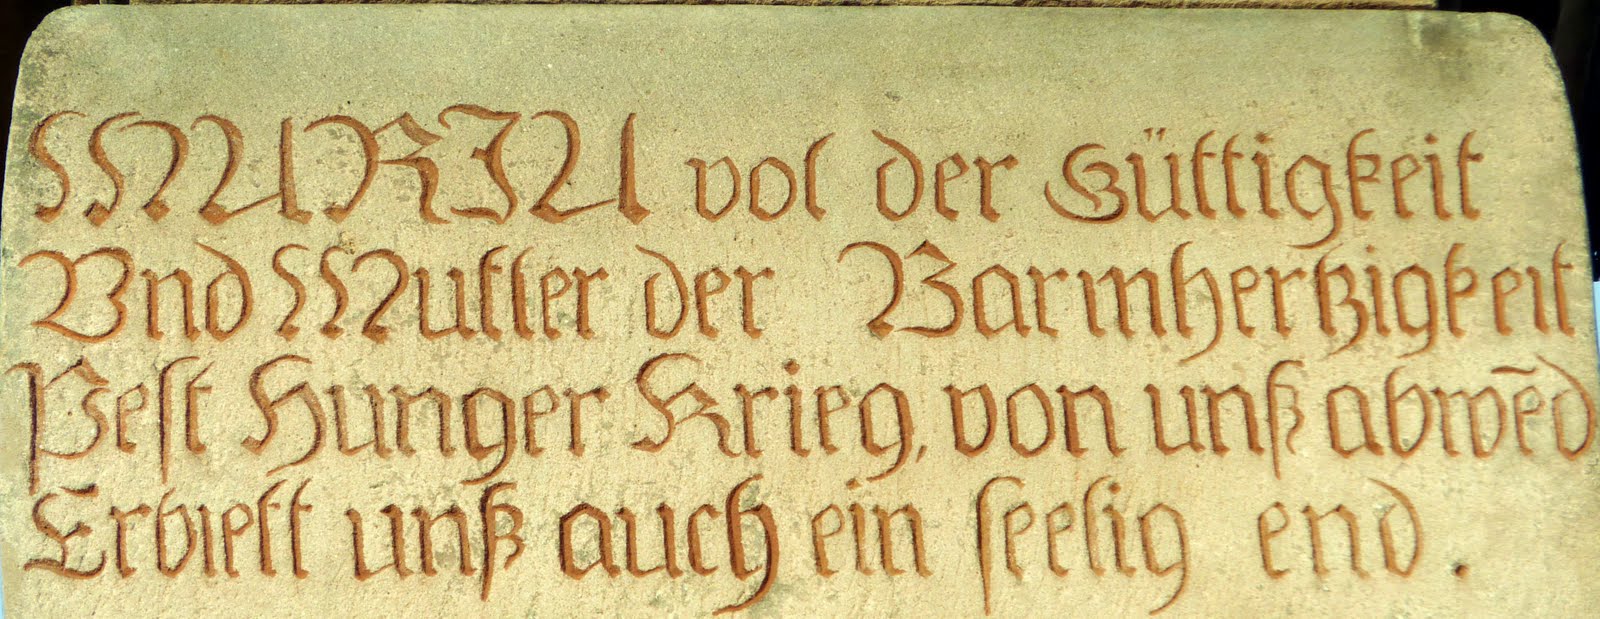 MARIA vol der Güttigkeit
Vnd Mutter der Barmhertzigkeit
Pest Hunger Krieg, von unß abwēd
Erbiett unß auch ein seelig end.